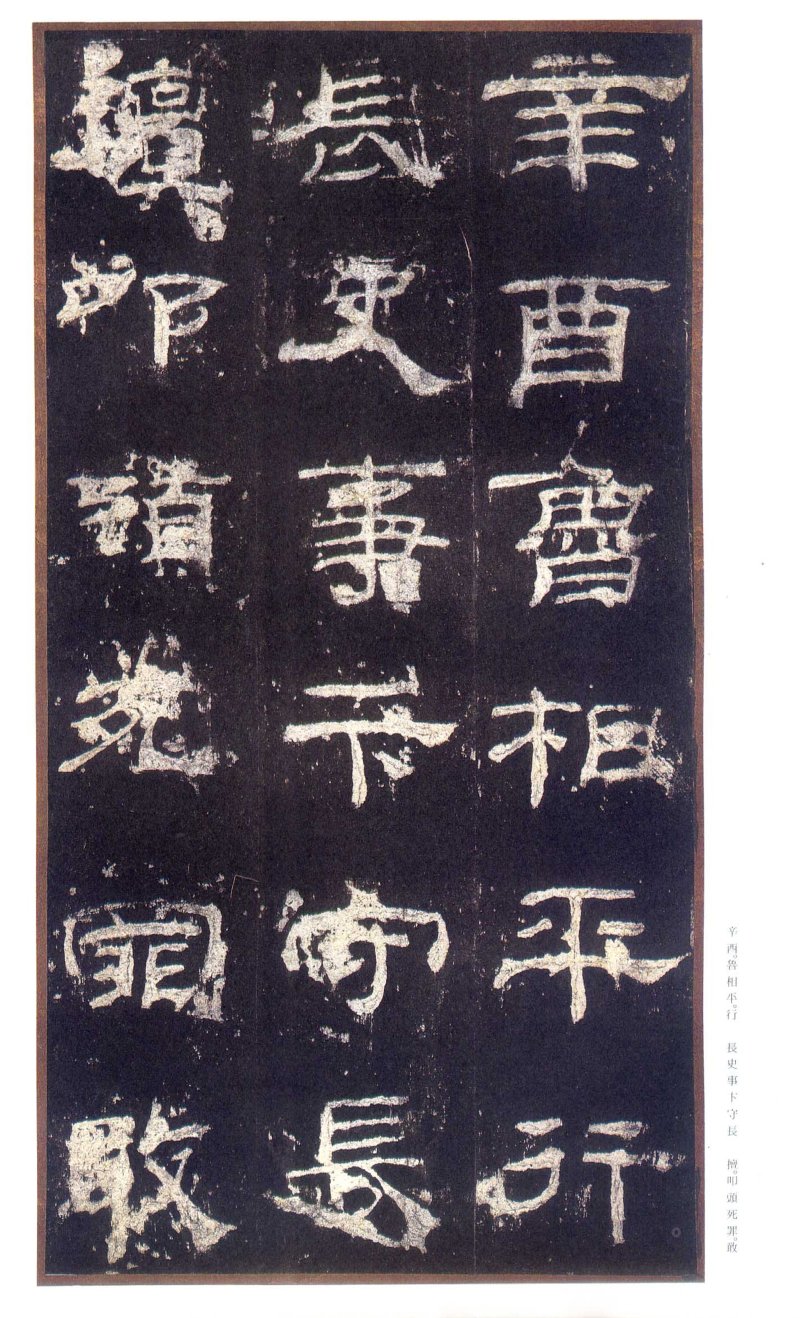 辛酉魯相平行
長史事卞守長
擅叩頭死罪敢
辛酉。魯相平。行　長史事卞守長　擅。叩頭死罪。敢